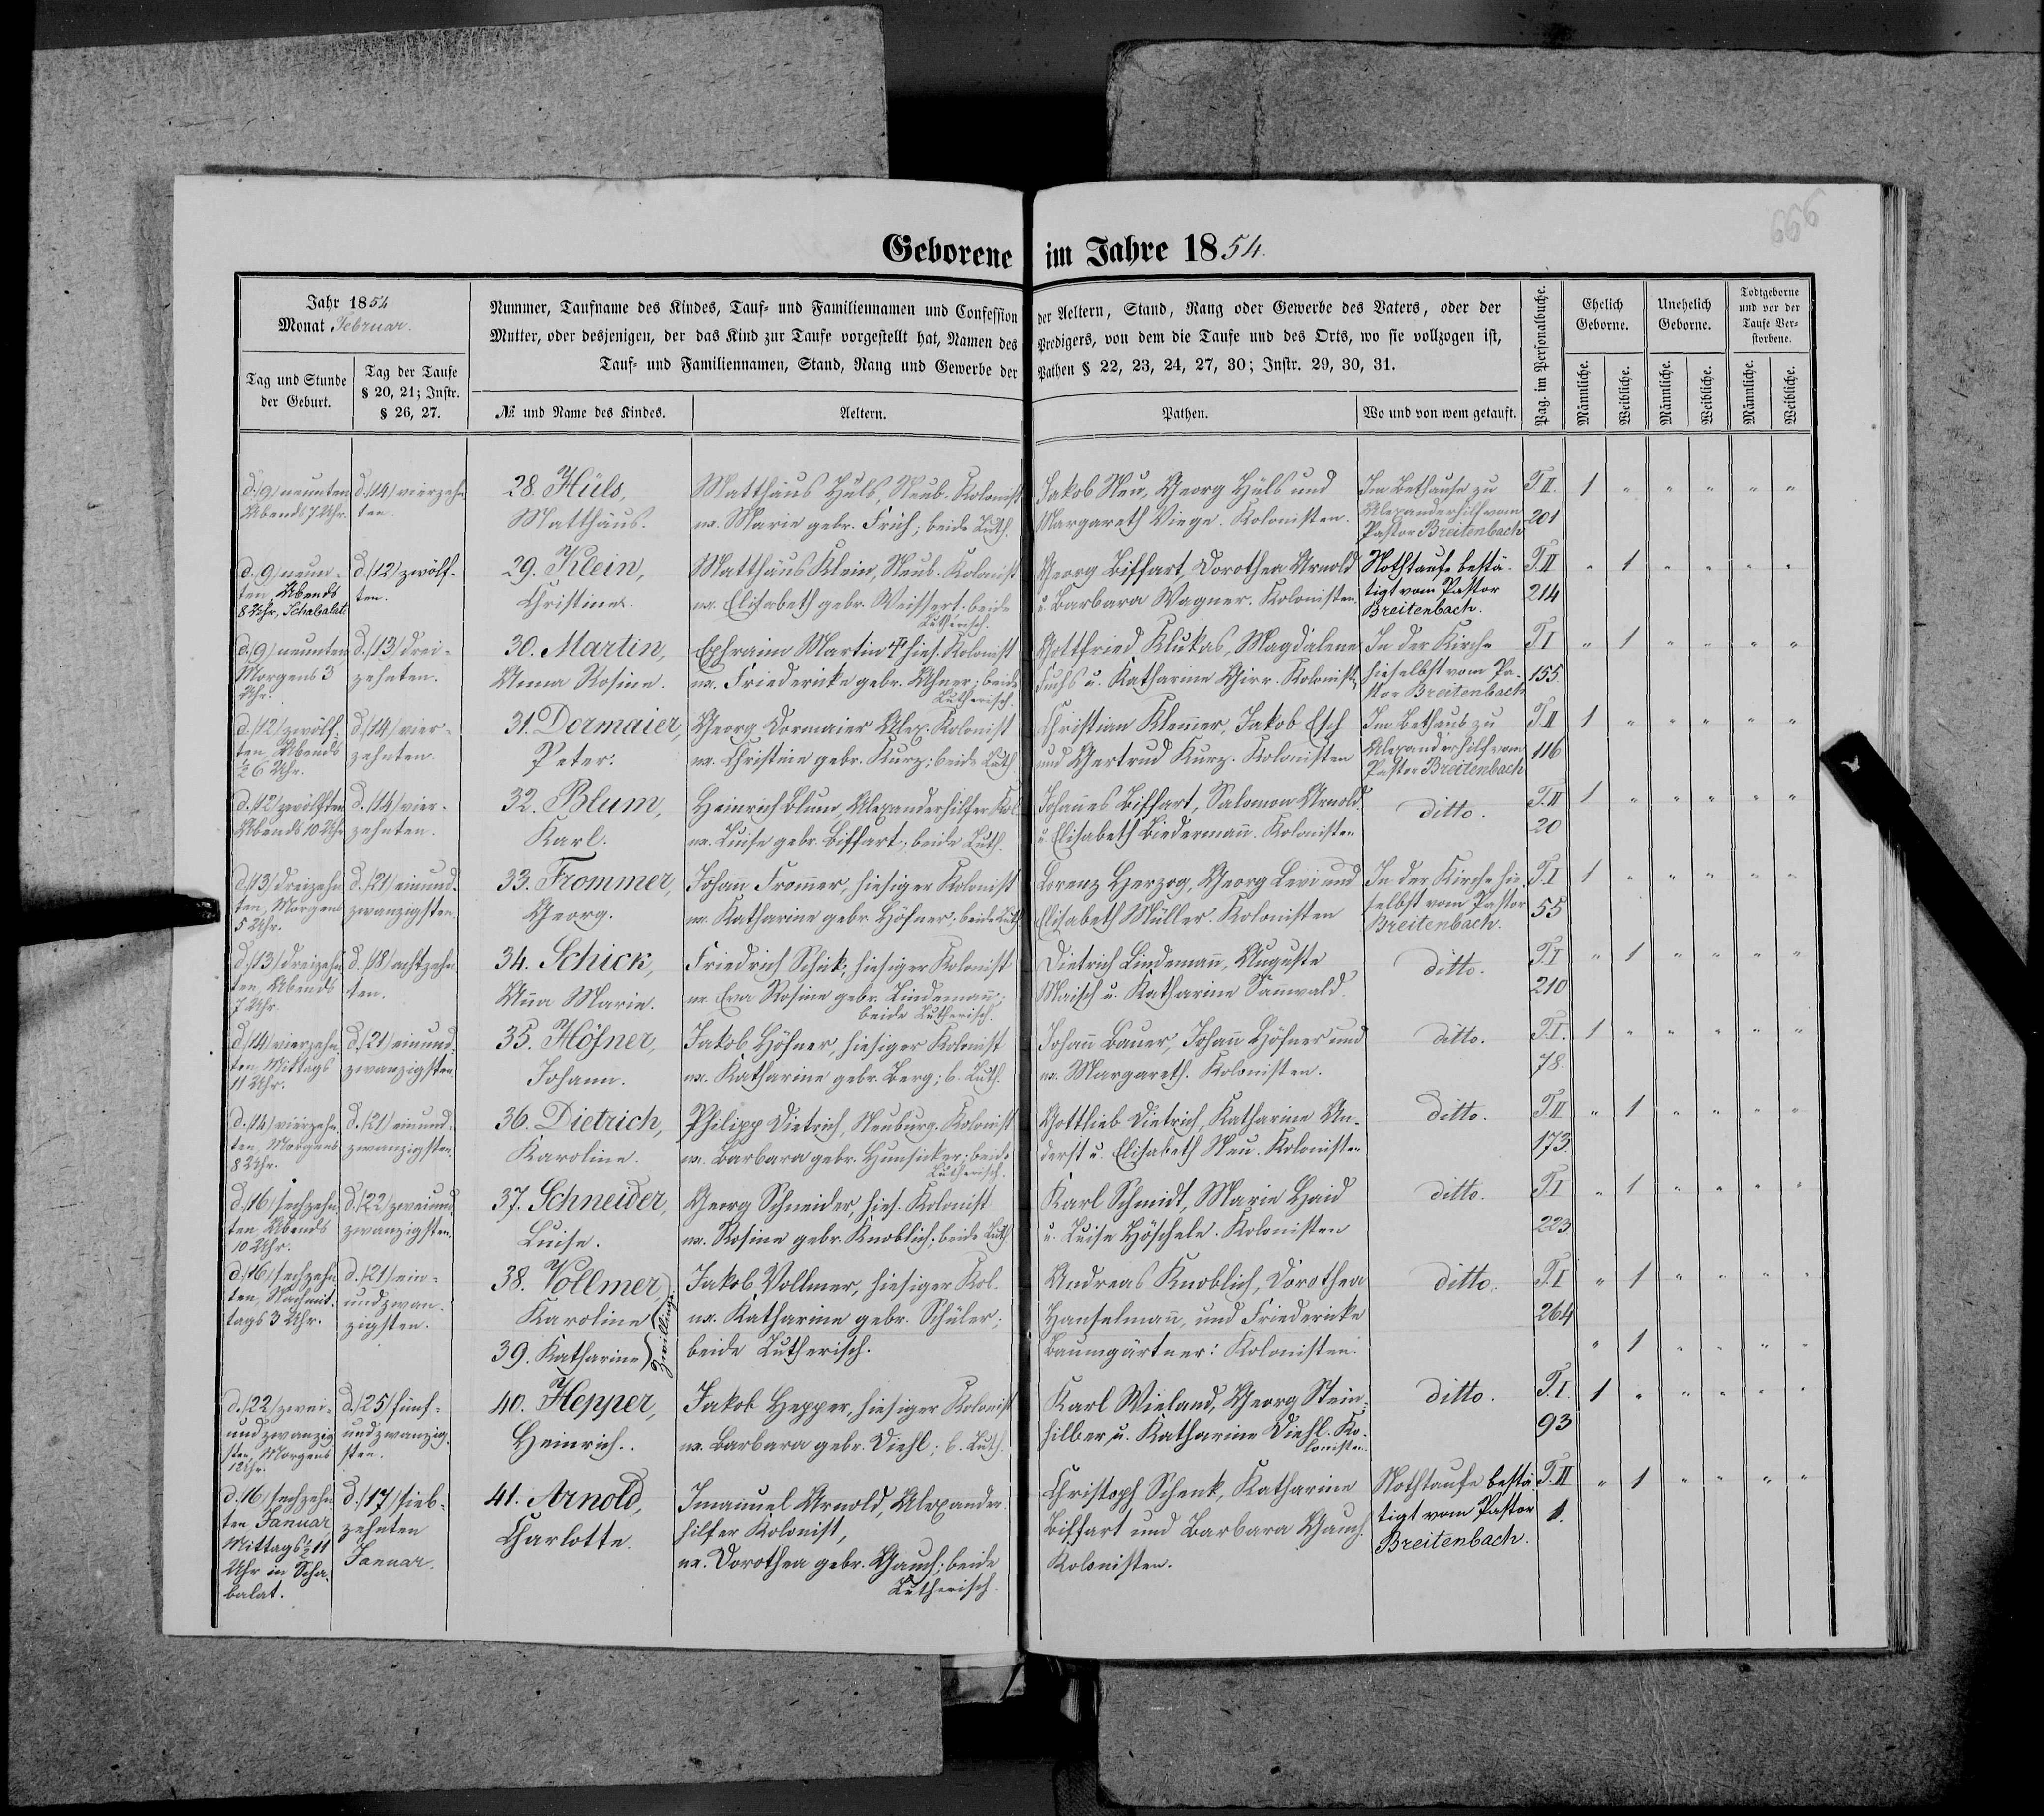 666
Geborene im Jahre 1854.
Jahr 1854
Monat Februar.
Tag und Stunde
der Geburt.
Tag der Taufe
§ 20, 21; Instr.
§ 26, 27.
Nummer, Taufname des Kindes, Tauf- und Familiennamen und Confession der Aeltern, Stand, Rang oder Gewerbe des Vaters, oder der
Mutter, oder desjenigen, der das Kind zur Taufe vorgestellt hat, Namen des Predigers, von dem die Taufe und des Orts, wo sie vollzogen ist,
Tauf- und Familiennamen, Stand, Rang und Gewerbe der Pathen § 22, 23, 24, 27, 30; Instr. 29, 30, 31.
№ und Name des Kindes.
Aeltern.
Pathen.
Wo und von wem getauft.
Pag. im Personalbuche.
Ehelich
Geborne.
Unehelich
Geborne.
Todtgeborne
und vor der
Taufe Ver-
storbene.
Männliche.
Weibliche.
Männliche.
Weibliche.
Männliche.
Weibliche.
d. (9) neunten
Abends 7 Uhr.
d. (14) vierzehn
ten.
28. Hüls,
Matthäus.
Matthäus Hüls, Neub. Kolonist
ux. Marie gebr. Früh; beide Luth.
Jakob Neu, Georg Hüls und
Margareth Viege. Kolonisten.
Im Bethause zu
Alexanderhilf vom
Pastor Breitenbach
T. II.
201
1 " " " " "
d. (9) neun-
ten, Abends
8 Uhr, Schabalat
d. (12) zwölf-
ten.
29. Klein,
Christine.
Matthäus Klein, Neub. Kolonist
ux. Elisabeth gebr. Weissert. beide
Lutherisch.
Georg Biffart, Dorothea Arnold
u. Barbara Wagner. Kolonisten.
Nothtaufe bestä-
tigt vom Pastor
Breitenbach.
T. II
214
" 1 " " " "
d. (9) neunten
Morgens 3
Uhr.
d. (13) drei-
zehnten.
30. Martin,
Anna Rosine.
Ephraim Martin hies. Kolonist
ux. Friedericke gebr. Ahner; beide
Lutherisch.
Gottfried Klukas, Magdalene
Fuchs u. Katharine Girr. Kolonist.
In der Kirche
hieselbst vom Pa-
stor Breitenbach
T. I
155.
" 1 " " " "
d. (12) zwölf-
ten, Abends
½ 6 Uhr.
d. (14) vier-
zehnten.
31. Dormaier,
Peter.
Georg Dormaier Alex. Kolonist
ux. Christine gebr. Kurz; beide Luth.
Christian Klemer, Jakob Esch
und Gertrud Kurz. Kolonisten
Im Bethaus zu
Alexanderhilf vom
Pastor Breitenbach
T. II
116
1 " " " " "
d. (12) zwölften
Abends 10 Uhr
d. (14) vier-
zehnten.
32. Blum,
Karl.
Heinrich Blum, Alexanderhilfer Kol.
ux. Luise gebr. Biffart; beide Luth.
Johanes Biffart, Salomon Arnold
u. Elisabeth Biedermañ. Kolonisten
ditto.
T. II
20
1 " " " " "
d. (13) dreizehn
ten, Morgens
5 Uhr.
d. (21) einund-
zwanzigsten.
33. Frommer,
Georg.
Johañ Fromer, hiesiger Kolonist
ux. Katharine gebr. Höfner; beide Luth.
Lorenz Herzog, Georg Levi und
Elisabeth Müller. Kolonisten
In der Kirche hie-
selbst vom Pastor
Breitenbach.
T. I
55
1 " " " " "
d. (13) dreizehn
ten, Abends
7 Uhr.
d. (18) achtzehn
ten.
34. Schick,
Aña Marie.
Friedrich Schick, hiesiger Kolonist
ux. Eva Rosine gebr. Lindemañ;
beide Lutherisch.
Dietrich Lindemañ, Auguste
Maisch u. Katharine Sañwald.
ditto.
T. I
210
" 1 " " " "
d. (14) vierzehn
ten, Mittags
11 Uhr.
d. (21) einund
zwanzigsten.
35. Höfner,
Johann.
Jakob Höfner, hiesiger Kolonist
ux. Katharine gebr. Berg; b. Luth.
Johañ Bauer, Johañ Höfner und
ux. Margareth. Kolonisten.
ditto.
T. I.
78.
1 " " " " "
d. (14) vierzehn
ten, Morgens
8 Uhr.
d. (21) einund-
zwanzigsten.
36. Dietrich,
Karoline.
Philipp Dietrich, Neuburg. Kolonist
ux. Barbara gebr. Hunsicker; beide
Lutherisch.
Gottlieb Dietrich, Katharine An-
derst u. Elisabeth Neu. Kolonisten
ditto.
T. II
173.
" 1 " " " "
d. (16) sechzehn
ten Abends
10 Uhr.
d. (22) zweiund
zwanzigsten.
37. Schneider,
Luise.
Georg Schneider, hies. Kolonist
ux. Rosine gebr. Knoblich; beide Luth.
Karl Schmidt, Marie Haid
u. Luise Höschele. Kolonisten
ditto.
T. I
223
" 1 " " " "
d. (16) sechzehn
ten, Nachmit-
tags 3 Uhr.
d. (21) ein-
undzwan-
zigsten.
38. Vollmer,
Karoline
39. Katharine
Zwillinge.
Jakob Vollmer, hiesiger Kol.
ux. Katharine gebr. Schüler;
beide Lutherisch.
Andreas Knoblich, Dorothea
Hanselmañ, und Friedericke
Baumgärtner: Kolonisten.
ditto.
T. I
264
" 1 " " " "
" 1 " " " "
d. (22) zwei-
undzwanzig
sten, Morgens
1 Uhr.
d. (25) fünf-
undzwanzig-
sten.
40. Hepper,
Heinrich.
Jakob Hepper, hiesiger Kolonist
ux. Barbara gebr. Diehl; b. Luth.
Karl Wieland, Georg Stein-
hilber, u. Katharine Diehl. Ko-
lonisten.
ditto.
T. I.
93
1 " " " " "
d. 16) sechzehn
ten Januar,
Mittags ½ 11
Uhr in Scha-
balat.
d. (17) sieb-
zehnten
Januar.
41. Arnold,
Charlotte.
Imanuel Arnold, Alexander-
hilfer Kolonist,
ux. Dorothea gebr. Gauch; beide
Lutherisch.
Christoph Schenk, Katharine
Biffart und Barbara Gauch.
Kolonisten.
Nothtaufe bestä-
tigt vom Pastor
Breitenbach.
T. II
1.
" 1 " " " "